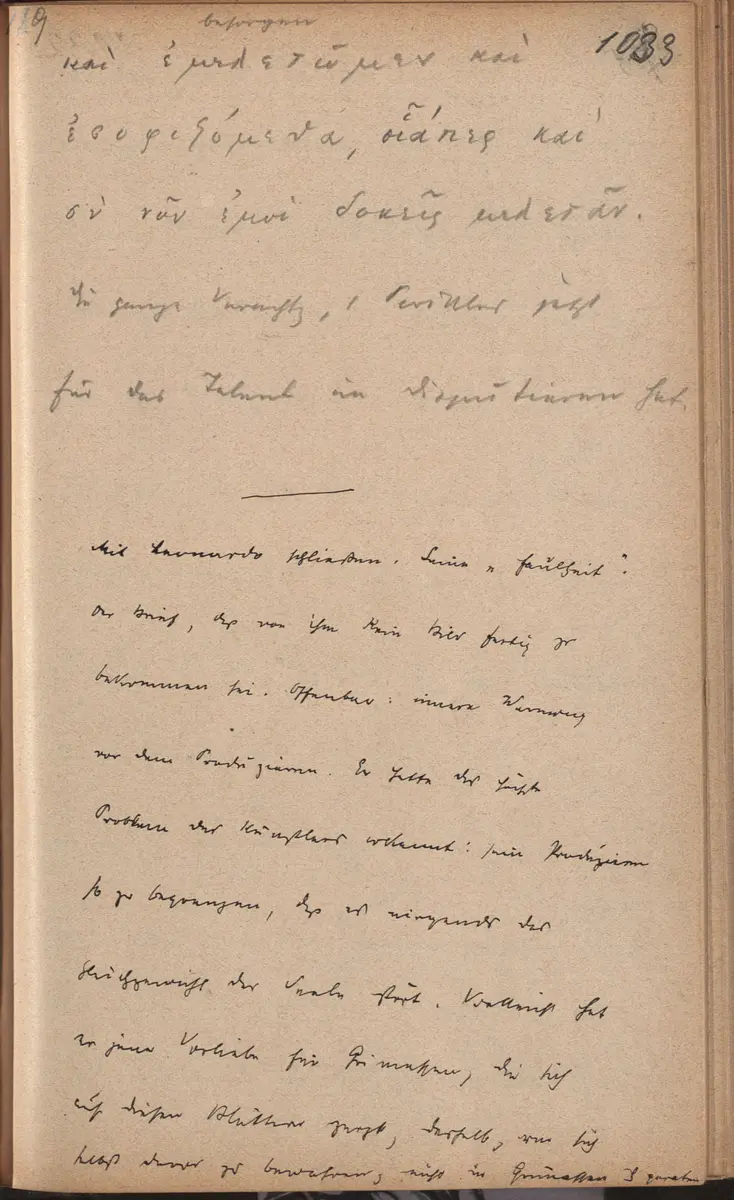 9
1033
besorgen
καὶ ἐμελετῶμεν καὶ
ἐσοφιζόμεθα, οἷάπερ καὶ
σὺ νῦν ἐμοὶ δοκεῖς μελετᾶν.
Die ganze Verachtg, Perikles jetzt
für das Talent im Disputieren hat.
Mit Leonardo schließen. Seine „Faulheit".
Der Brief, daß von ihm kein Bild fertig zu
bekommen sei. Offenbar: innere Warnung
vor dem Produzieren. Er hatte das höchste
Problem des Künstlers erkannt: sein Produzieren
so zu begrenzen, daß es nirgends das
Gleichgewicht der Seele stört. Vielleicht hat
er jene Vorliebe für Grimassen, die sich
auf diesen Blättern zeigt, deshalb, um sich
selbst davor zu bewahren, nicht in Grimassen zu geraten